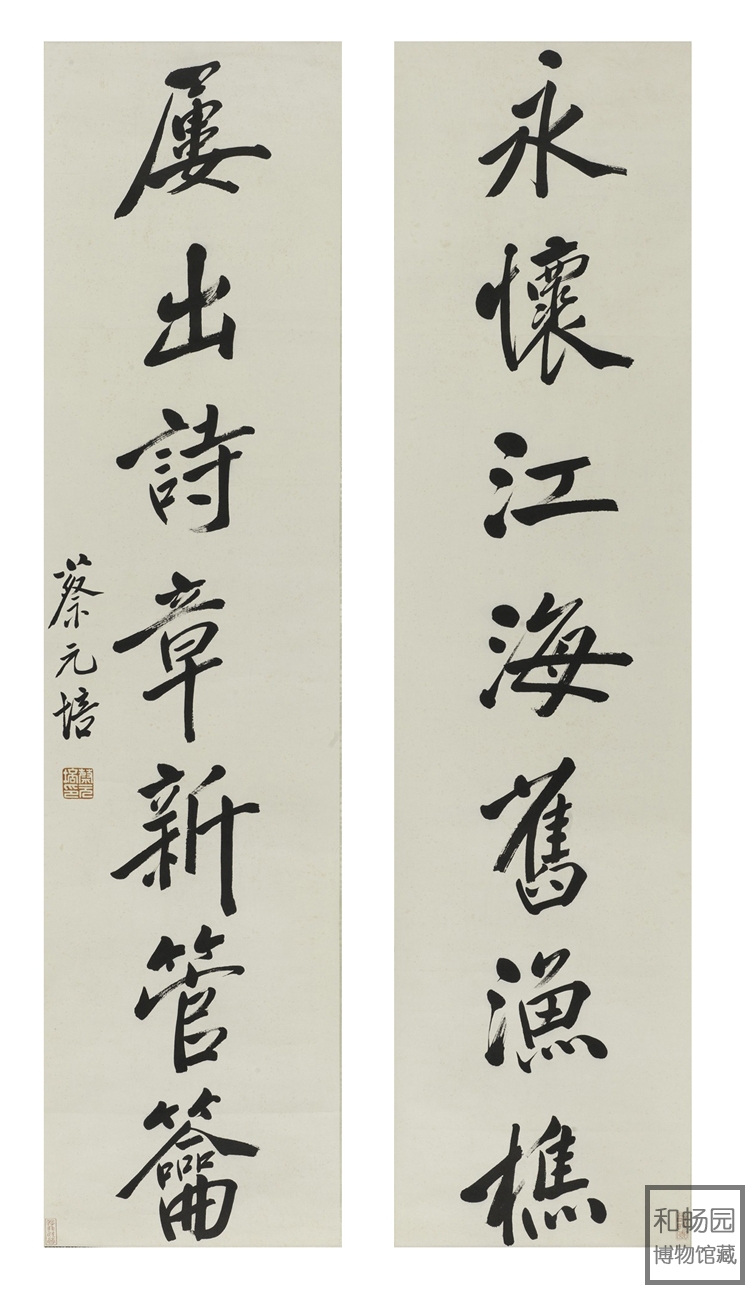 永懷江海舊漁樵
屢出詩章新管籥
蔡元培
蔡元培印
和畅园
博物馆藏